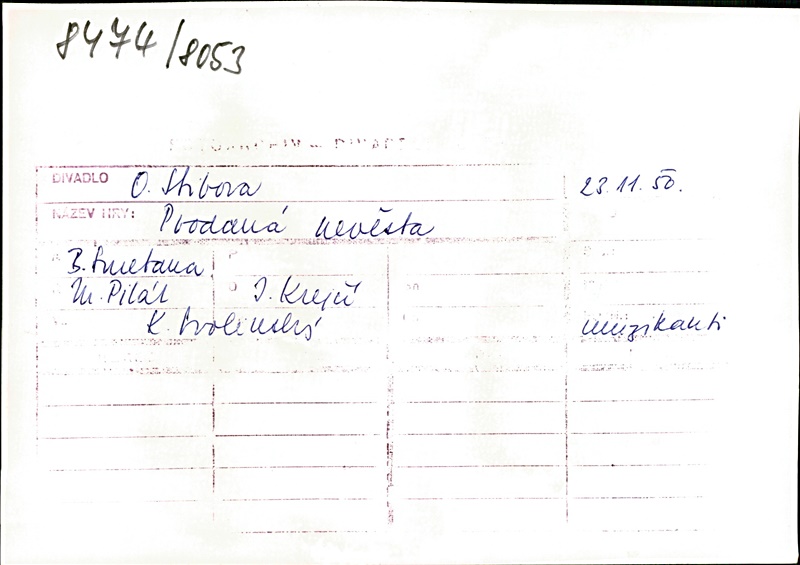 8474/8053
DIVADLO O. Stibora 23.11.50.
NÁZEV HRY: Prodaná nevěsta
B. Smetana
M. Pilát J. Krejčí
K. Svolinský muzikanti